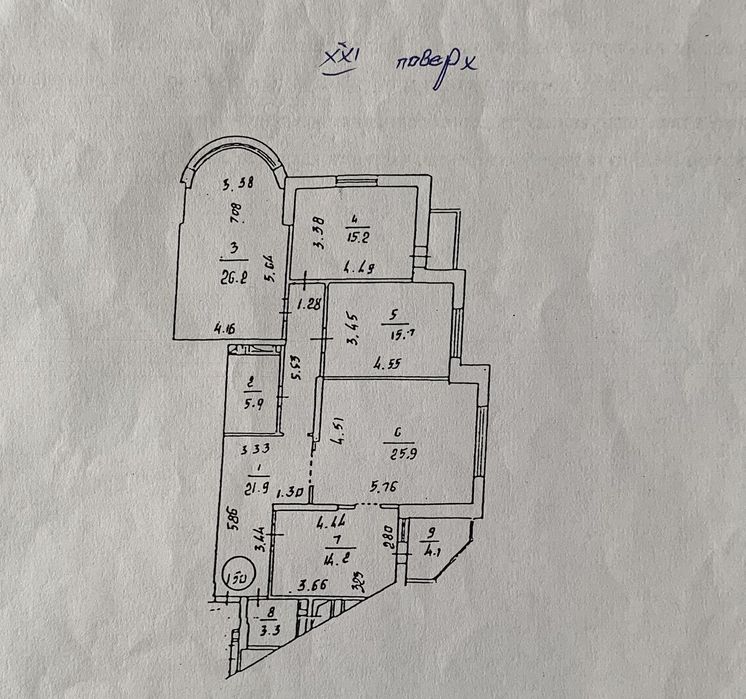 XXI поверх
3.38
7.08
3
26.2
5.04
4.16
3.38
4
15.2
4.49
1.28
3.45
5
15.7
4.55
5.53
2
5.9
4.51
6
25.9
5.76
3.33
1
21.9
1.30
5.86
3.44
4.44
7
14.2
2.80
9
4.1
3.66
3.03
150
8
3.3